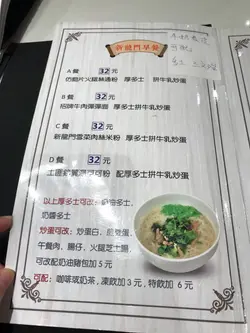 新龍門早餐
A餐 32元
厚多士 拼牛乳炒蛋
B餐 32元
招牌牛肉彈彈麵 厚多士拼牛乳炒蛋
C餐 32元
新龍門雪菜肉絲米粉 厚多士拼牛乳炒蛋
D餐 32元
配多士拼牛乳炒蛋
以上厚多士可改：奶油多士、
奶醬多士
炒蛋可改：炒蛋白、煎雙蛋、
午餐肉、腸仔、火腿芝士腸、
可改配奶油豬包加5元
可配：咖啡或奶茶，凍飲加3元，特飲加 6元